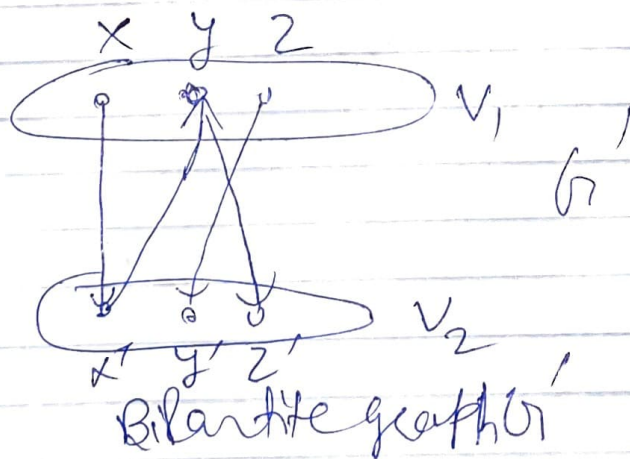 x y z
V1
G'
V2
x' y' z'
Bipartite graph G'